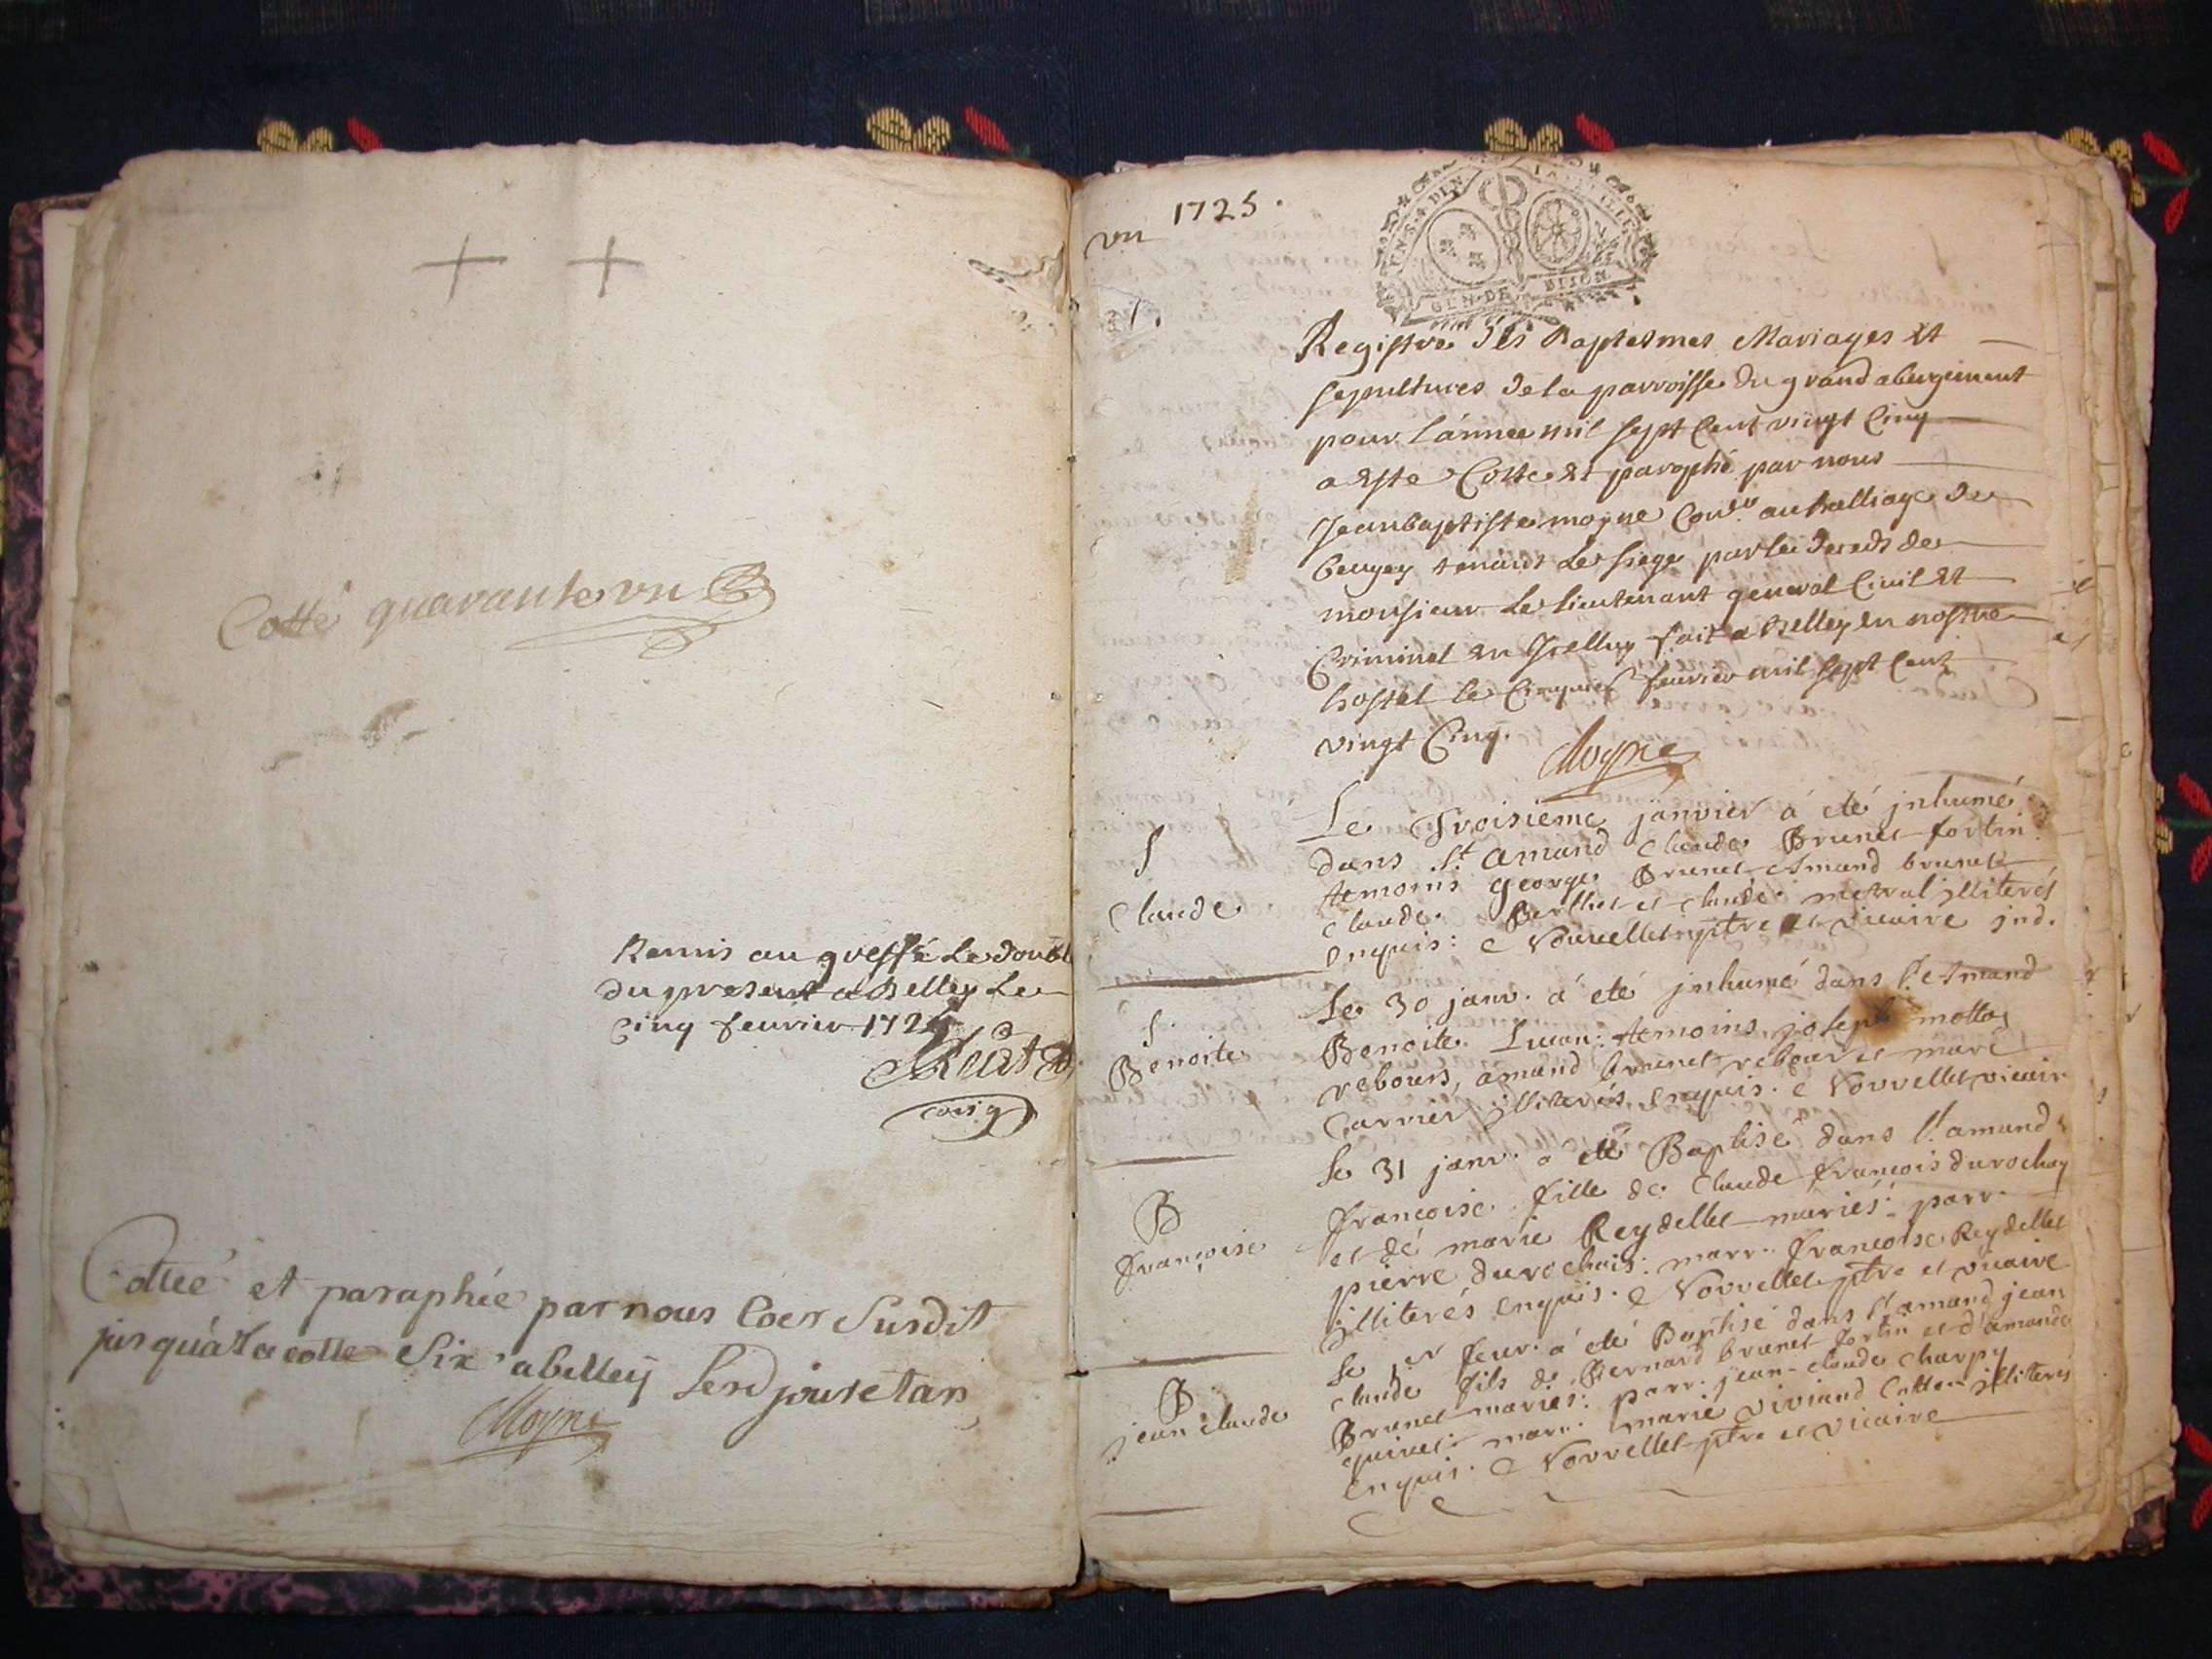 Cotté quarante vn
Remis au greffe Le doubl
du present a Belley Le
Cinq feurier 172
Cottée et paraphée par nous Coer Susdit
jusqu'a la cotte Six a belley Lesd jour et an
Moyne
1725.
vn
1.
GEN DE DIJON
Registre des Baptesmes Mariages et
sepultures de la parroisse du grand abergement
pour l'année mil sept Cent vingt Cinq
a este Cotté et paraphé par nous
Jean baptiste moyne Conser au balliage de
beugey tenant Le siege par le deceds de
monsieur Le lieutenant general Ciuil et
Criminel en Jcelluy fait a Belley en nostre
hostel le Cinquie feurier mil sept Cent
vingt Cinq.
Moyne
S
Claude
Le troisieme janvier a été jnhumé
dans St amand Claude Brunet fortin
temoins george Brunet Amand brunet
Claude Berthet et Claude metral jlliterés
enquis: C Nouvellet ptre et vicaire jnd.
S.
Benoite
Le 30 janv. a eté jnhumé dans St Amand
Benoite temoins joseph mottoz
rebours, amand brunet rebour et marc
Carrier jlliterés enquis. C Nouvellet vicair
B
françoise
Le 31 janv. a eté Baptisé dans St amand
françoise fille de Claude françois durochay
et de marie Reydellet mariés: parr.
pierre durochais: marr. françoise Reydellet
jlliterés enquis. C Nouvellet ptre et vicaire
B
jean claude
Le 1er feur. a eté Baptisé dans St amand jean
Claude fils de Bernard brunet fortin et d'amande
Brunet mariés: parr. jean-claude Charpy
marr. marie viviand jlliterés
enquis. C Nouvellet ptre et vicaire